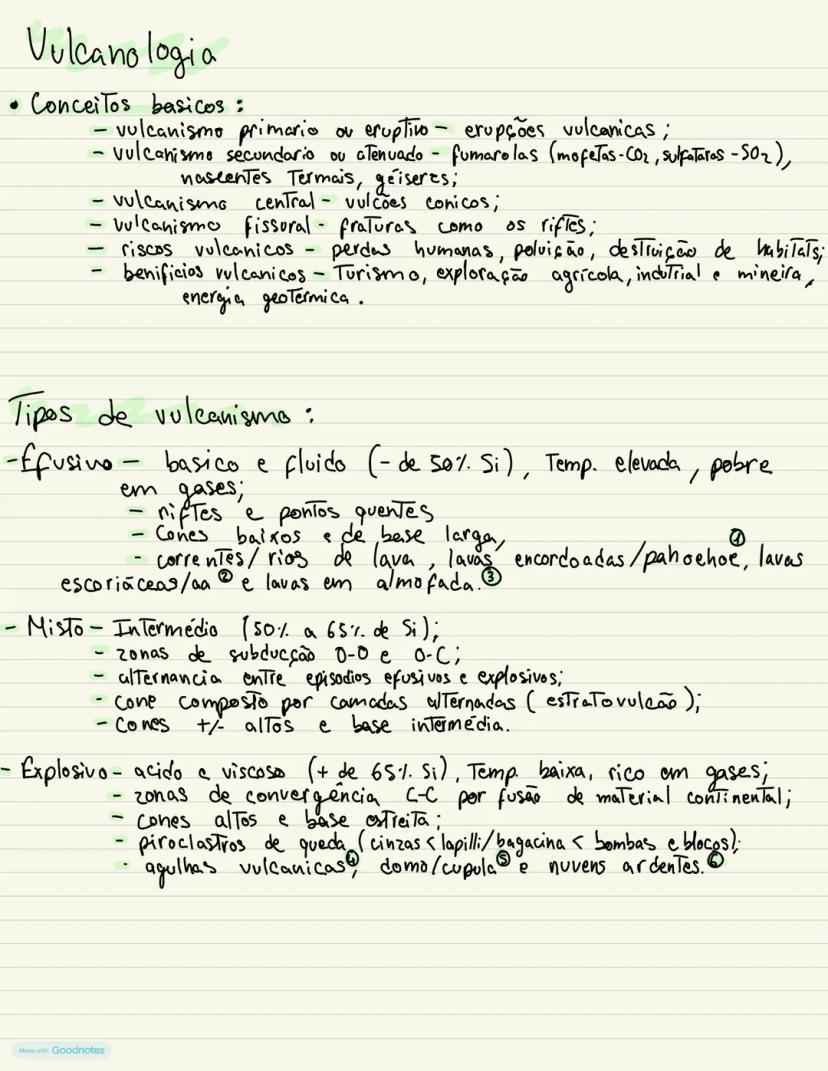 Vulcanologia
• Conceitos basicos:
– vulcanismo primario ou eruptivo – erupções vulcanicas;
– vulcanismo secundario ou atenuado – fumarolas (mofetas-CO2, sulfataras -SO2),
nascentes Termais, géiseres;
– vulcanismo central – vulcões conicos;
– vulcanismo fissural – fraturas como os riftes;
– riscos vulcanicos – perdas humanas, poluição, destruição de habitats;
– benificios vulcanicos – Turismo, exploração agrícola, indutrial e mineira,
energia geotermica.
Tipos de vulcanismo:
- Efusivo – basico e fluido (- de 50% Si), Temp. elevada, pobre
em gases;
– riftes e pontos quentes
– Cones baixos e de base larga,
- correntes/rios de lava, lavas encordoadas/pahoehoe, ① lavas
escoriáceas/aa ② e lavas em almofada. ③
- Misto – Intermédio (50% a 65% de Si);
- zonas de subducção O-O e O-C;
– alternancia entre episodios efusivos e explosivos;
- cone composto por camadas alternadas (estratovulcão);
– Cones +/- altos e base intermédia.
- Explosivo – acido e viscoso (+ de 65% Si), Temp. baixa, rico em gases;
– zonas de convergência C-C por fusão de material continental;
– cones altos e base estreita;
– piroclastros de queda (cinzas < lapilli/bagacina < bombas e blocos);
· agulhas vulcanicas ④, domo/cupula ⑤ e nuvens ardentes. ⑥
Made with Goodnotes